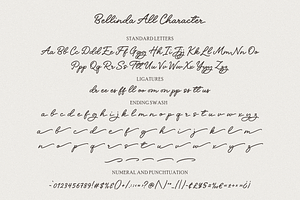 Bellinda All Character
STANDARD LETTERS
Aa Bb Cc Dd Ee Ff Gg Hh Ii Jj Kk Ll Mm Nn Oo
Pp Qq Rr Ss Tt Uu Vv Ww Xx Yy Zz
LIGATURES
ENDING SWASH
a b c d e f g h i j k l m n o p q r s t u v w x y z
a b c d e f g h i j k l m
n o p q r s t u v w x y z
NUMERAL AND PUNCHTUATION